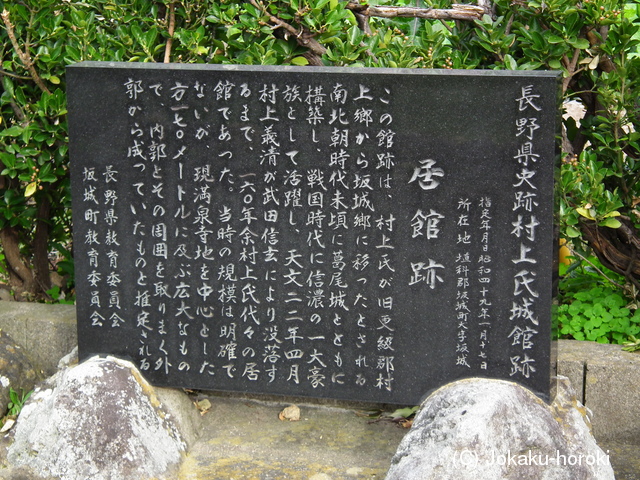 長野県史跡村上氏城館跡
指定年月日 昭和四十九年一月十七日
所在地 埴科郡坂城町大字坂城
居館跡
この館跡は、村上氏が旧更級郡村
上郷から坂城郷に移ったとされる
南北朝時代末頃に葛尾城とともに
構築し、戦国時代に信濃の一大豪
族として活躍し、天文二二年四月
村上義清が武田信玄により没落す
るまで、一六〇年余村上氏代々の居
館であった。当時の規模は明確で
ないが、現満泉寺地を中心とした
方一七〇メートルに及ぶ広大なもの
で、内郭とその周囲を取りまく外
郭から成っていたものと推定される
長野県教育委員会
坂城町教育委員会
(C) Jokaku-horoki